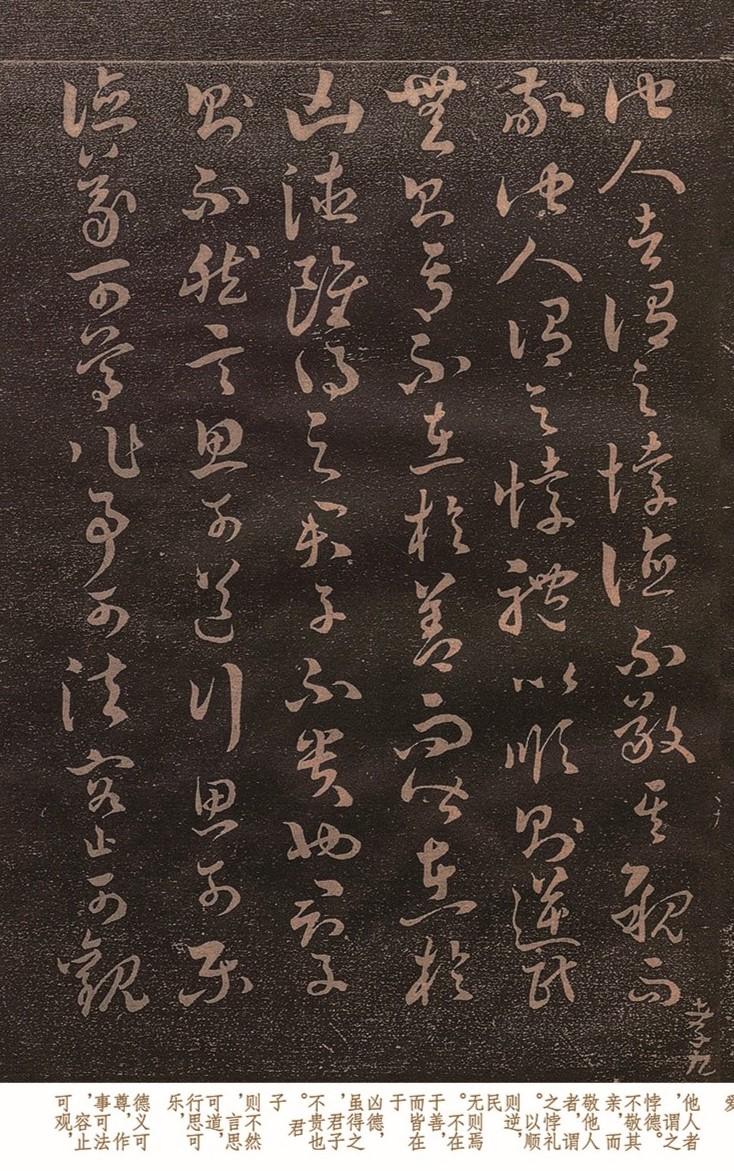 他人者謂之悖德不敬其親而
敬他人謂之悖禮以順則逆民
無則焉不在於善而皆在於
凶德雖得之君子不貴也君子
則不然言思可道行思可樂
德義可尊作事可法容止可觀
孝九
爱
他人者
，谓之
悖德。
不敬其
亲，而
敬他人
者，谓
之悖礼
。以顺
则逆，
民
无则焉
。不在
于善，
而皆在
于
凶德，
虽得之
，君子
不贵也
。君
子
则不然
，言思
可道，
行思可
乐，
德义可
尊，作
事可法
，容止
可观，